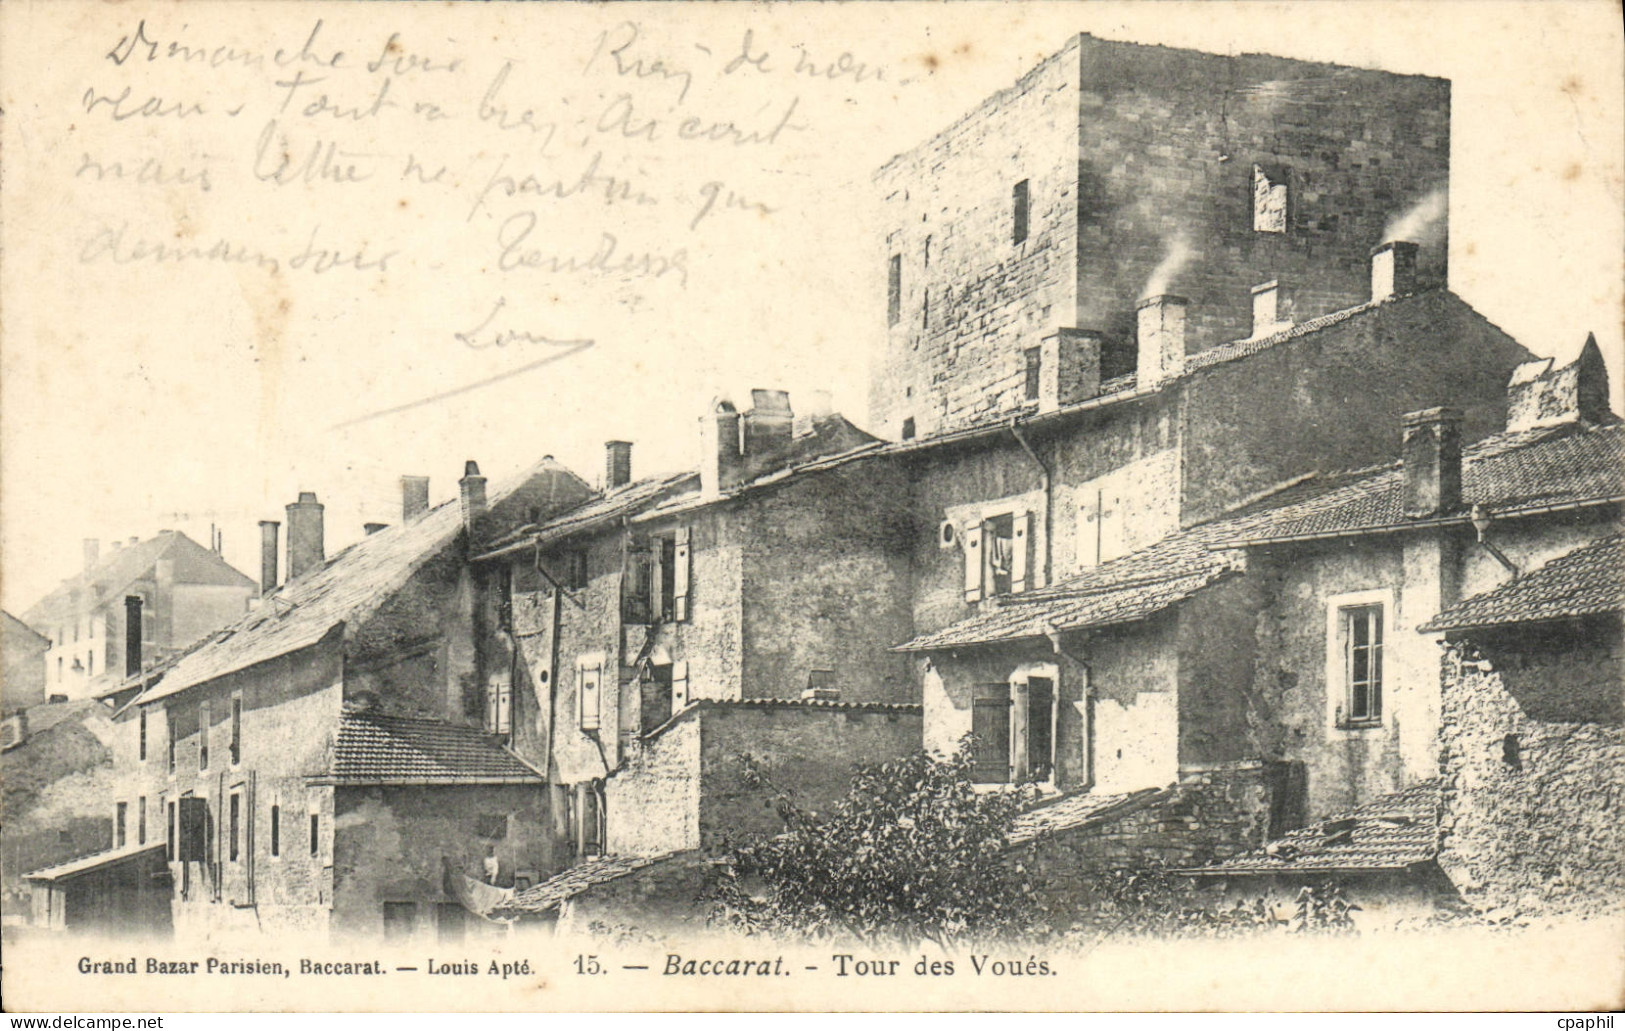 Dimanche soir - Rien de nou-
veau. Tout va bien. Ai écrit
mais lettre ne partira que
demain soir - Tendresses
Grand Bazar Parisien, Baccarat. — Louis Apté. 15. — Baccarat. - Tour des Voués.
delcampe.net
cpaphil